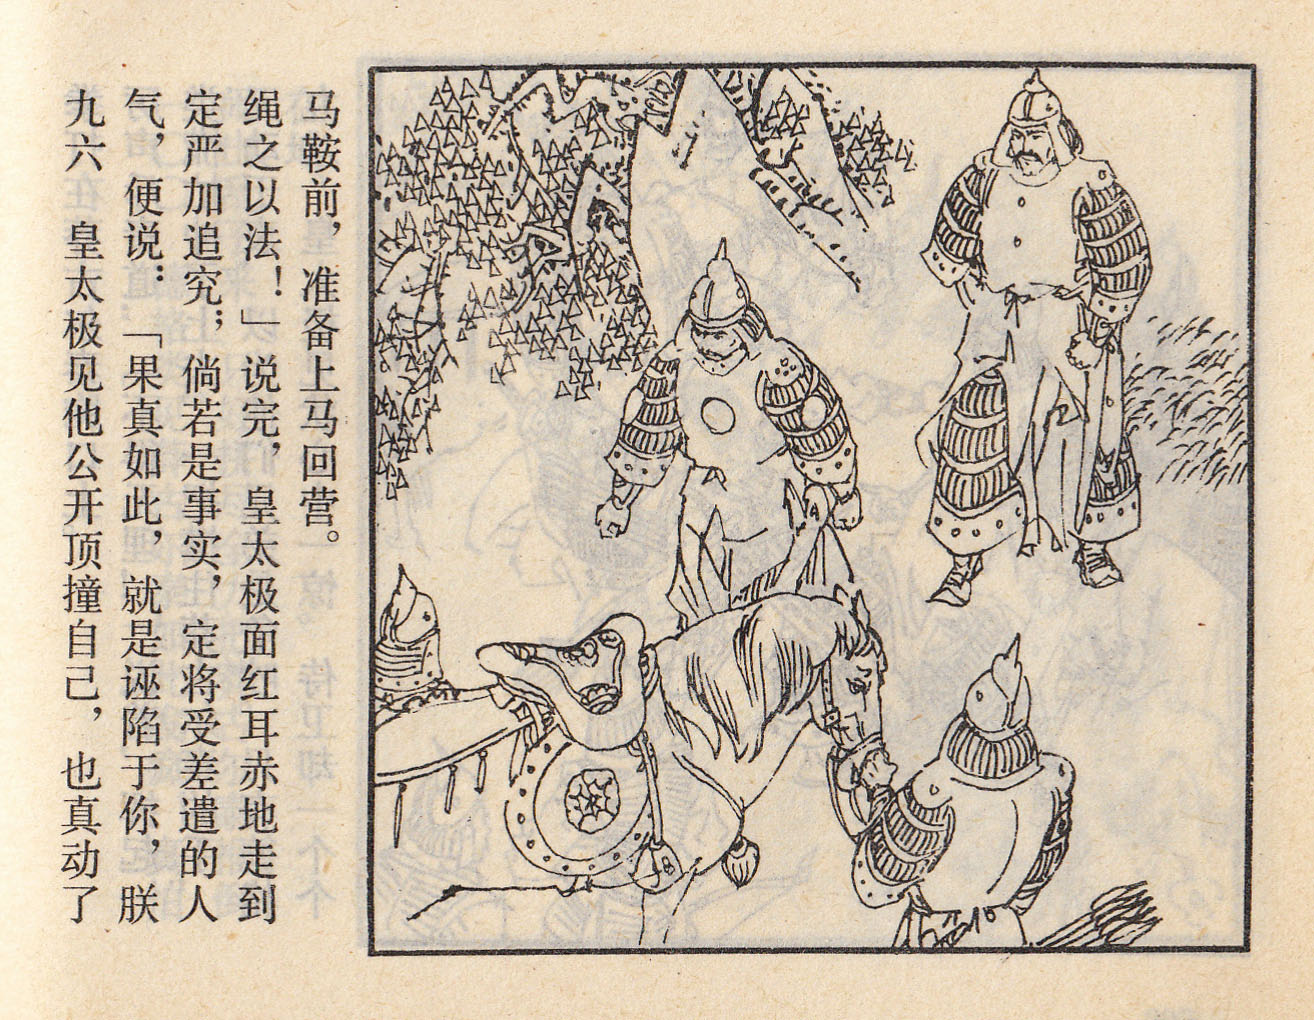 九六 皇太极见他公开顶撞自己，也真动了
气，便说：「果真如此，就是诬陷于你，朕
定严加追究；倘若是事实，定将受差遣的人
绳之以法！」说完，皇太极面红耳赤地走到
马鞍前，准备上马回营。